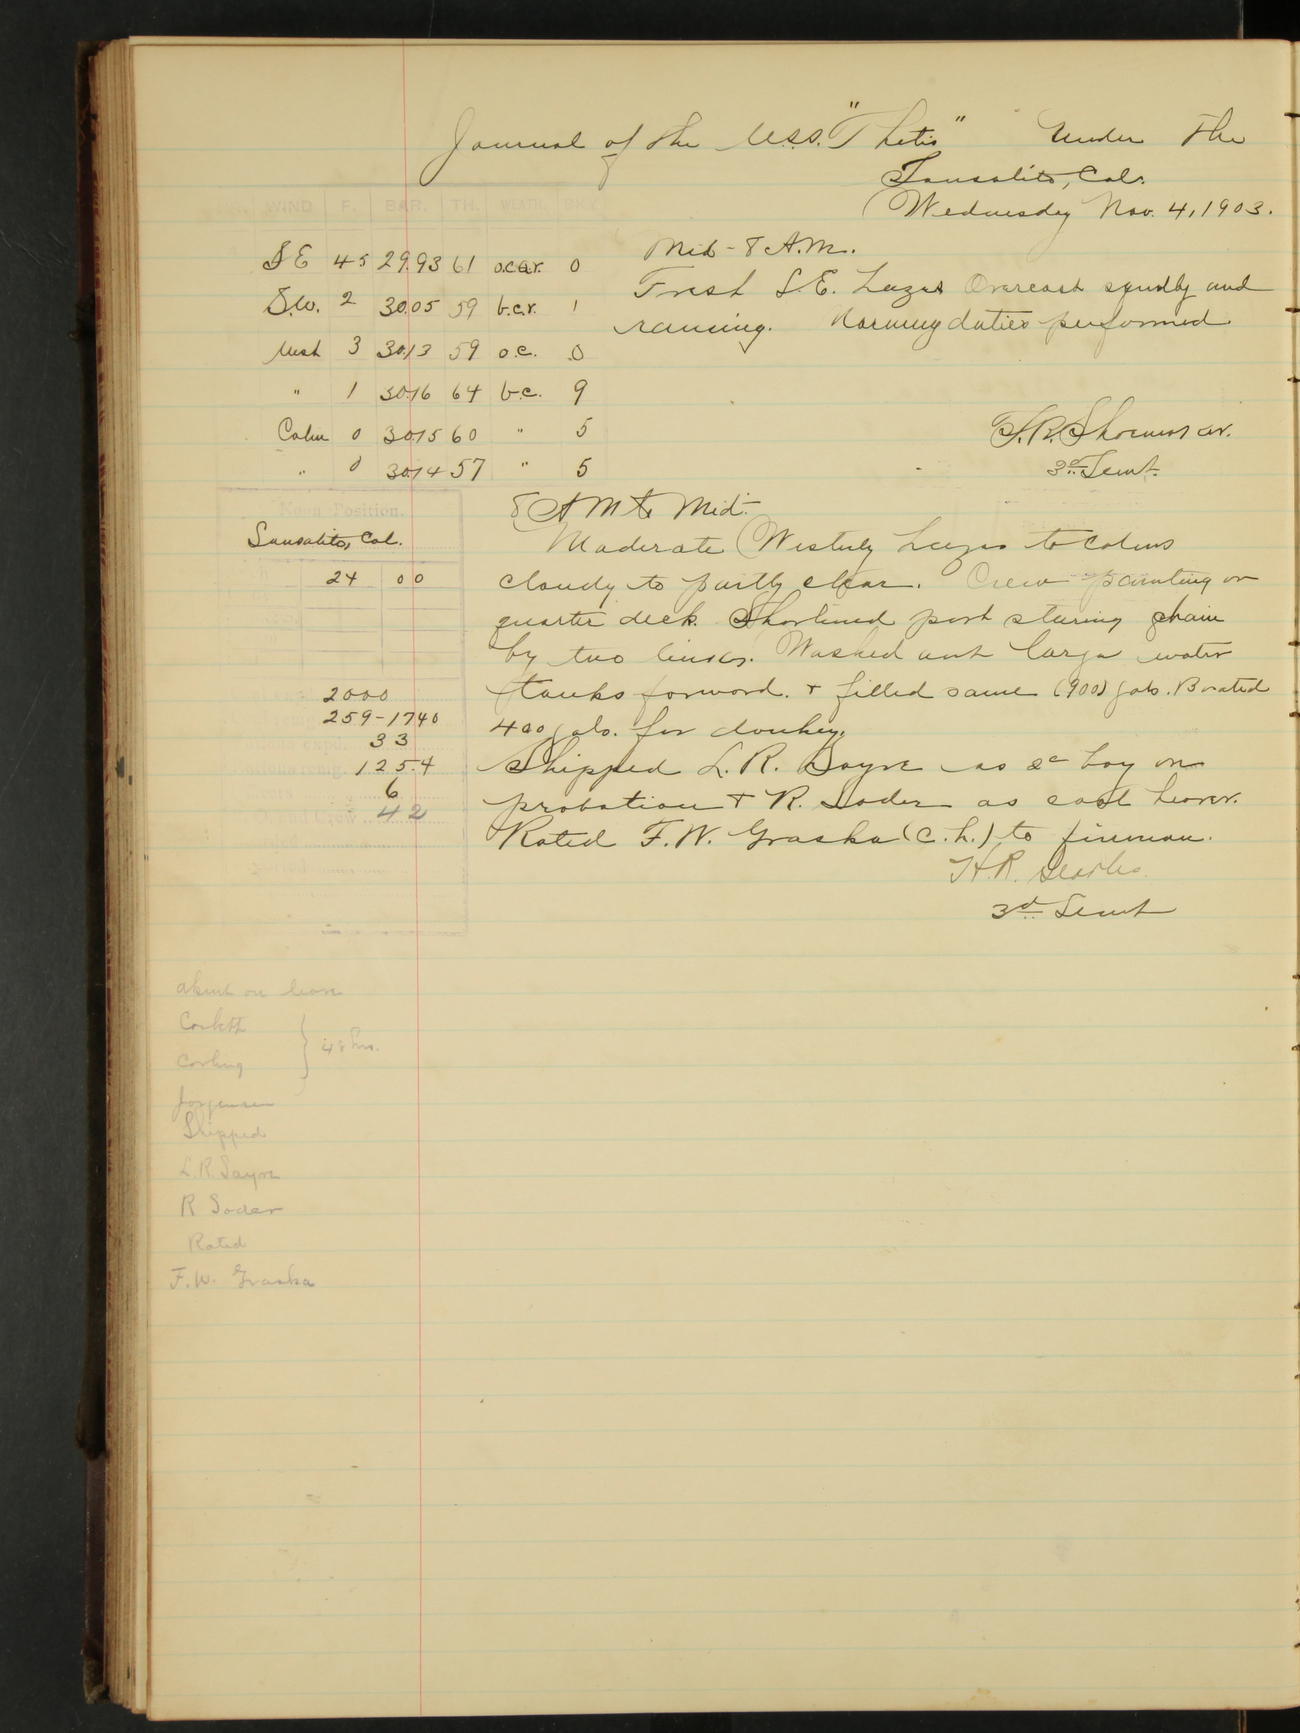 Journal of the U.S.S. "Thetis" Under the
Sausalito, Cal.
Wednesday Nov. 4, 1903.
WIND F. BAR. TH. WEATH.
S E 45 29.93 61 o.c.q.r. 0
S.W. 2 30.05 59 b.c.r. 1
West 3 30.13 59 o.c. 0
" 1 30.16 64 b.c. 9
Calm 0 30.15 60 " 5
" 0 30.14 57 " 5
Mid - 8 A.M.
Fresh S.E. breezes Overcast squally and
raining. Morning duties performed
3d Lieut.
Noon Position.
Sausalito, Cal.
24 00
2000
259-1740
33
1254
6
42
8 A M to Mid.
Moderate Westerly breezes to calms
cloudy to partly clear. Crew painting on
quarter deck. Shortened port steering chain
by two links. Washed out large water
tanks forward. + filled same (900) gals. Boated
400 gals. for donkey.
Shipped L. R. Sayre as 2c boy on
probation + R. Soder as coal heaver.
Rated F. W. Graska (C. H.) to fireman.
H.R. Searles
3d Lieut
absent on leave
Corbett
Corling } 48 hrs.
Jorgensen
Shipped
L. R. Sayre
R Soder
Rated
F. W. Graska